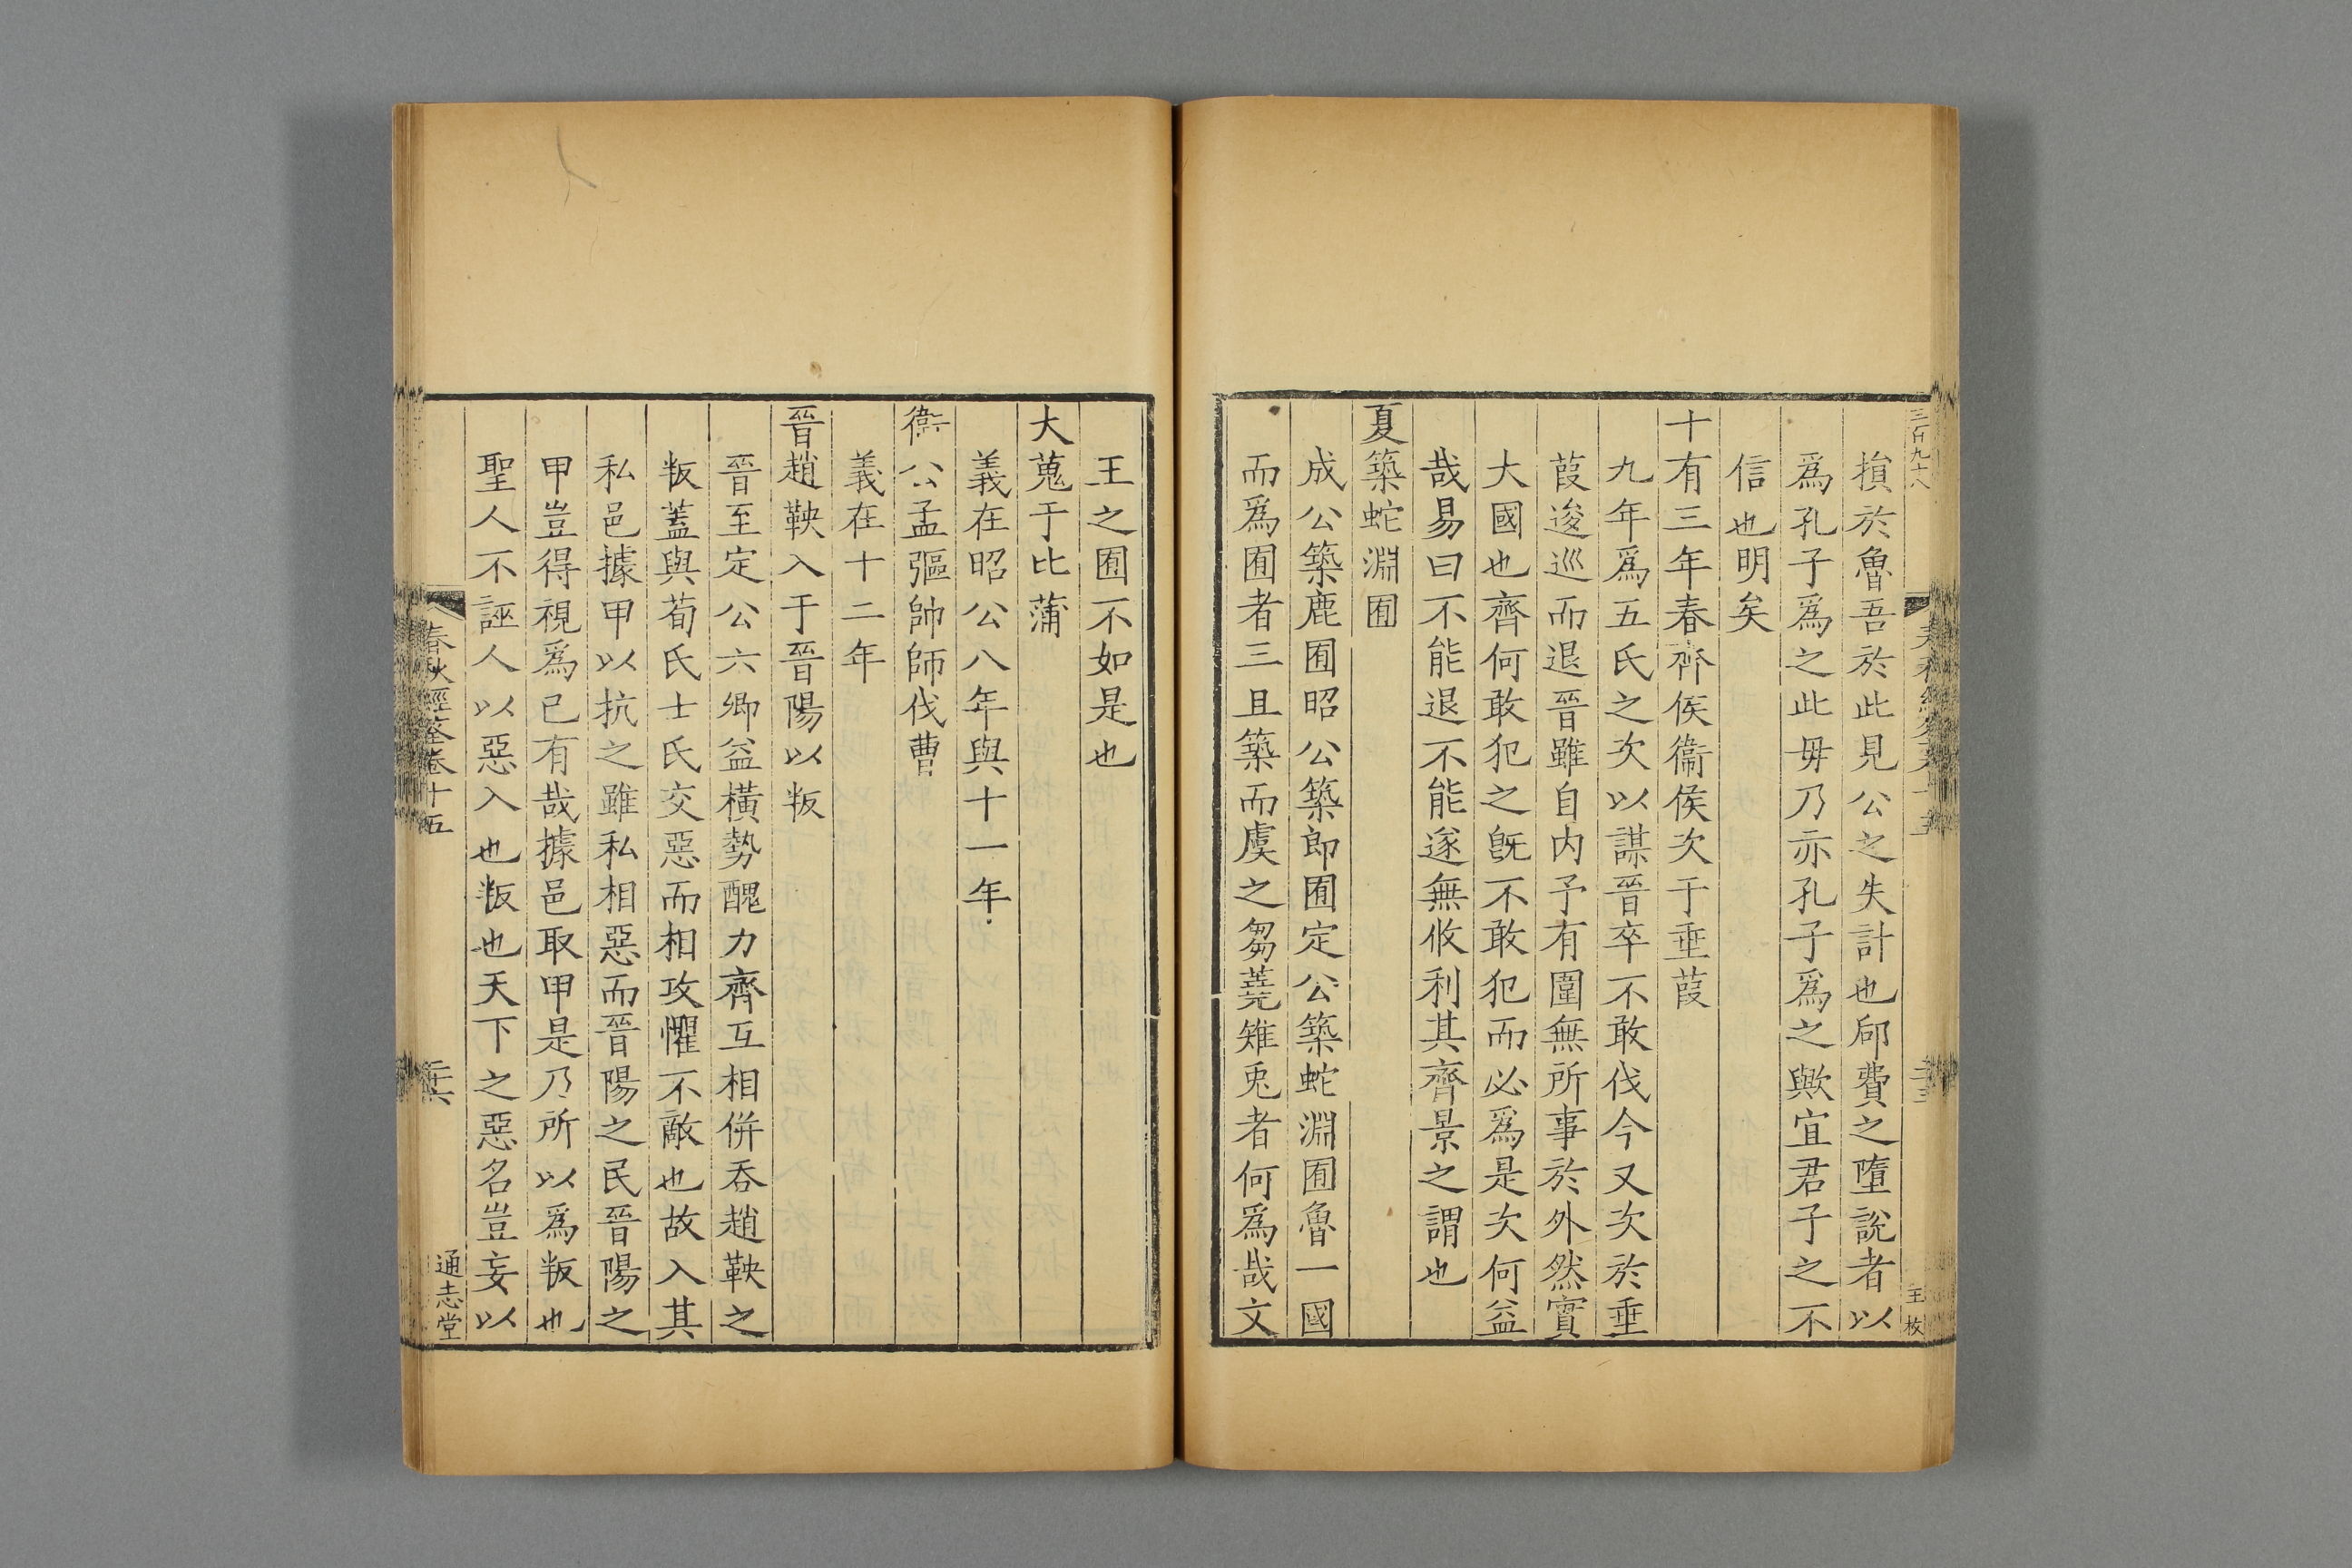 損於魯吾於此見公之失計也郈費之墮說者以
爲孔子爲之此毋乃亦孔子爲之歟宜君子之不
信也明矣
十有三年春齊侯衞侯次于垂葭
九年爲五氏之次以謀晉卒不敢伐今又次於垂
葭逡巡而退晉雖自内予有圍無所事於外然實
大國也齊何敢犯之旣不敢犯而必爲是次何益
哉易曰不能退不能遂無攸利其齊景之謂也
夏築蛇淵囿
成公築鹿囿昭公築郎囿定公築蛇淵囿魯一國
而爲囿者三且築而虞之芻蕘雉兎者何爲哉文
王之囿不如是也
大蒐于比蒲
義在昭公八年與十一年
衞公孟彄帥師伐曹
義在十二年
晉趙鞅入于晉陽以叛
晉至定公六卿益橫勢醜力齊互相併吞趙鞅之
叛蓋與荀氏士氏交惡而相攻懼不敵也故入其
私邑據甲以抗之雖私相惡而晉陽之民晉陽之
甲豈得視爲已有哉據邑取甲是乃所以爲叛也
聖人不誣人以惡入也叛也天下之惡名豈妄以
春秋經筌卷十五
二十六
通志堂